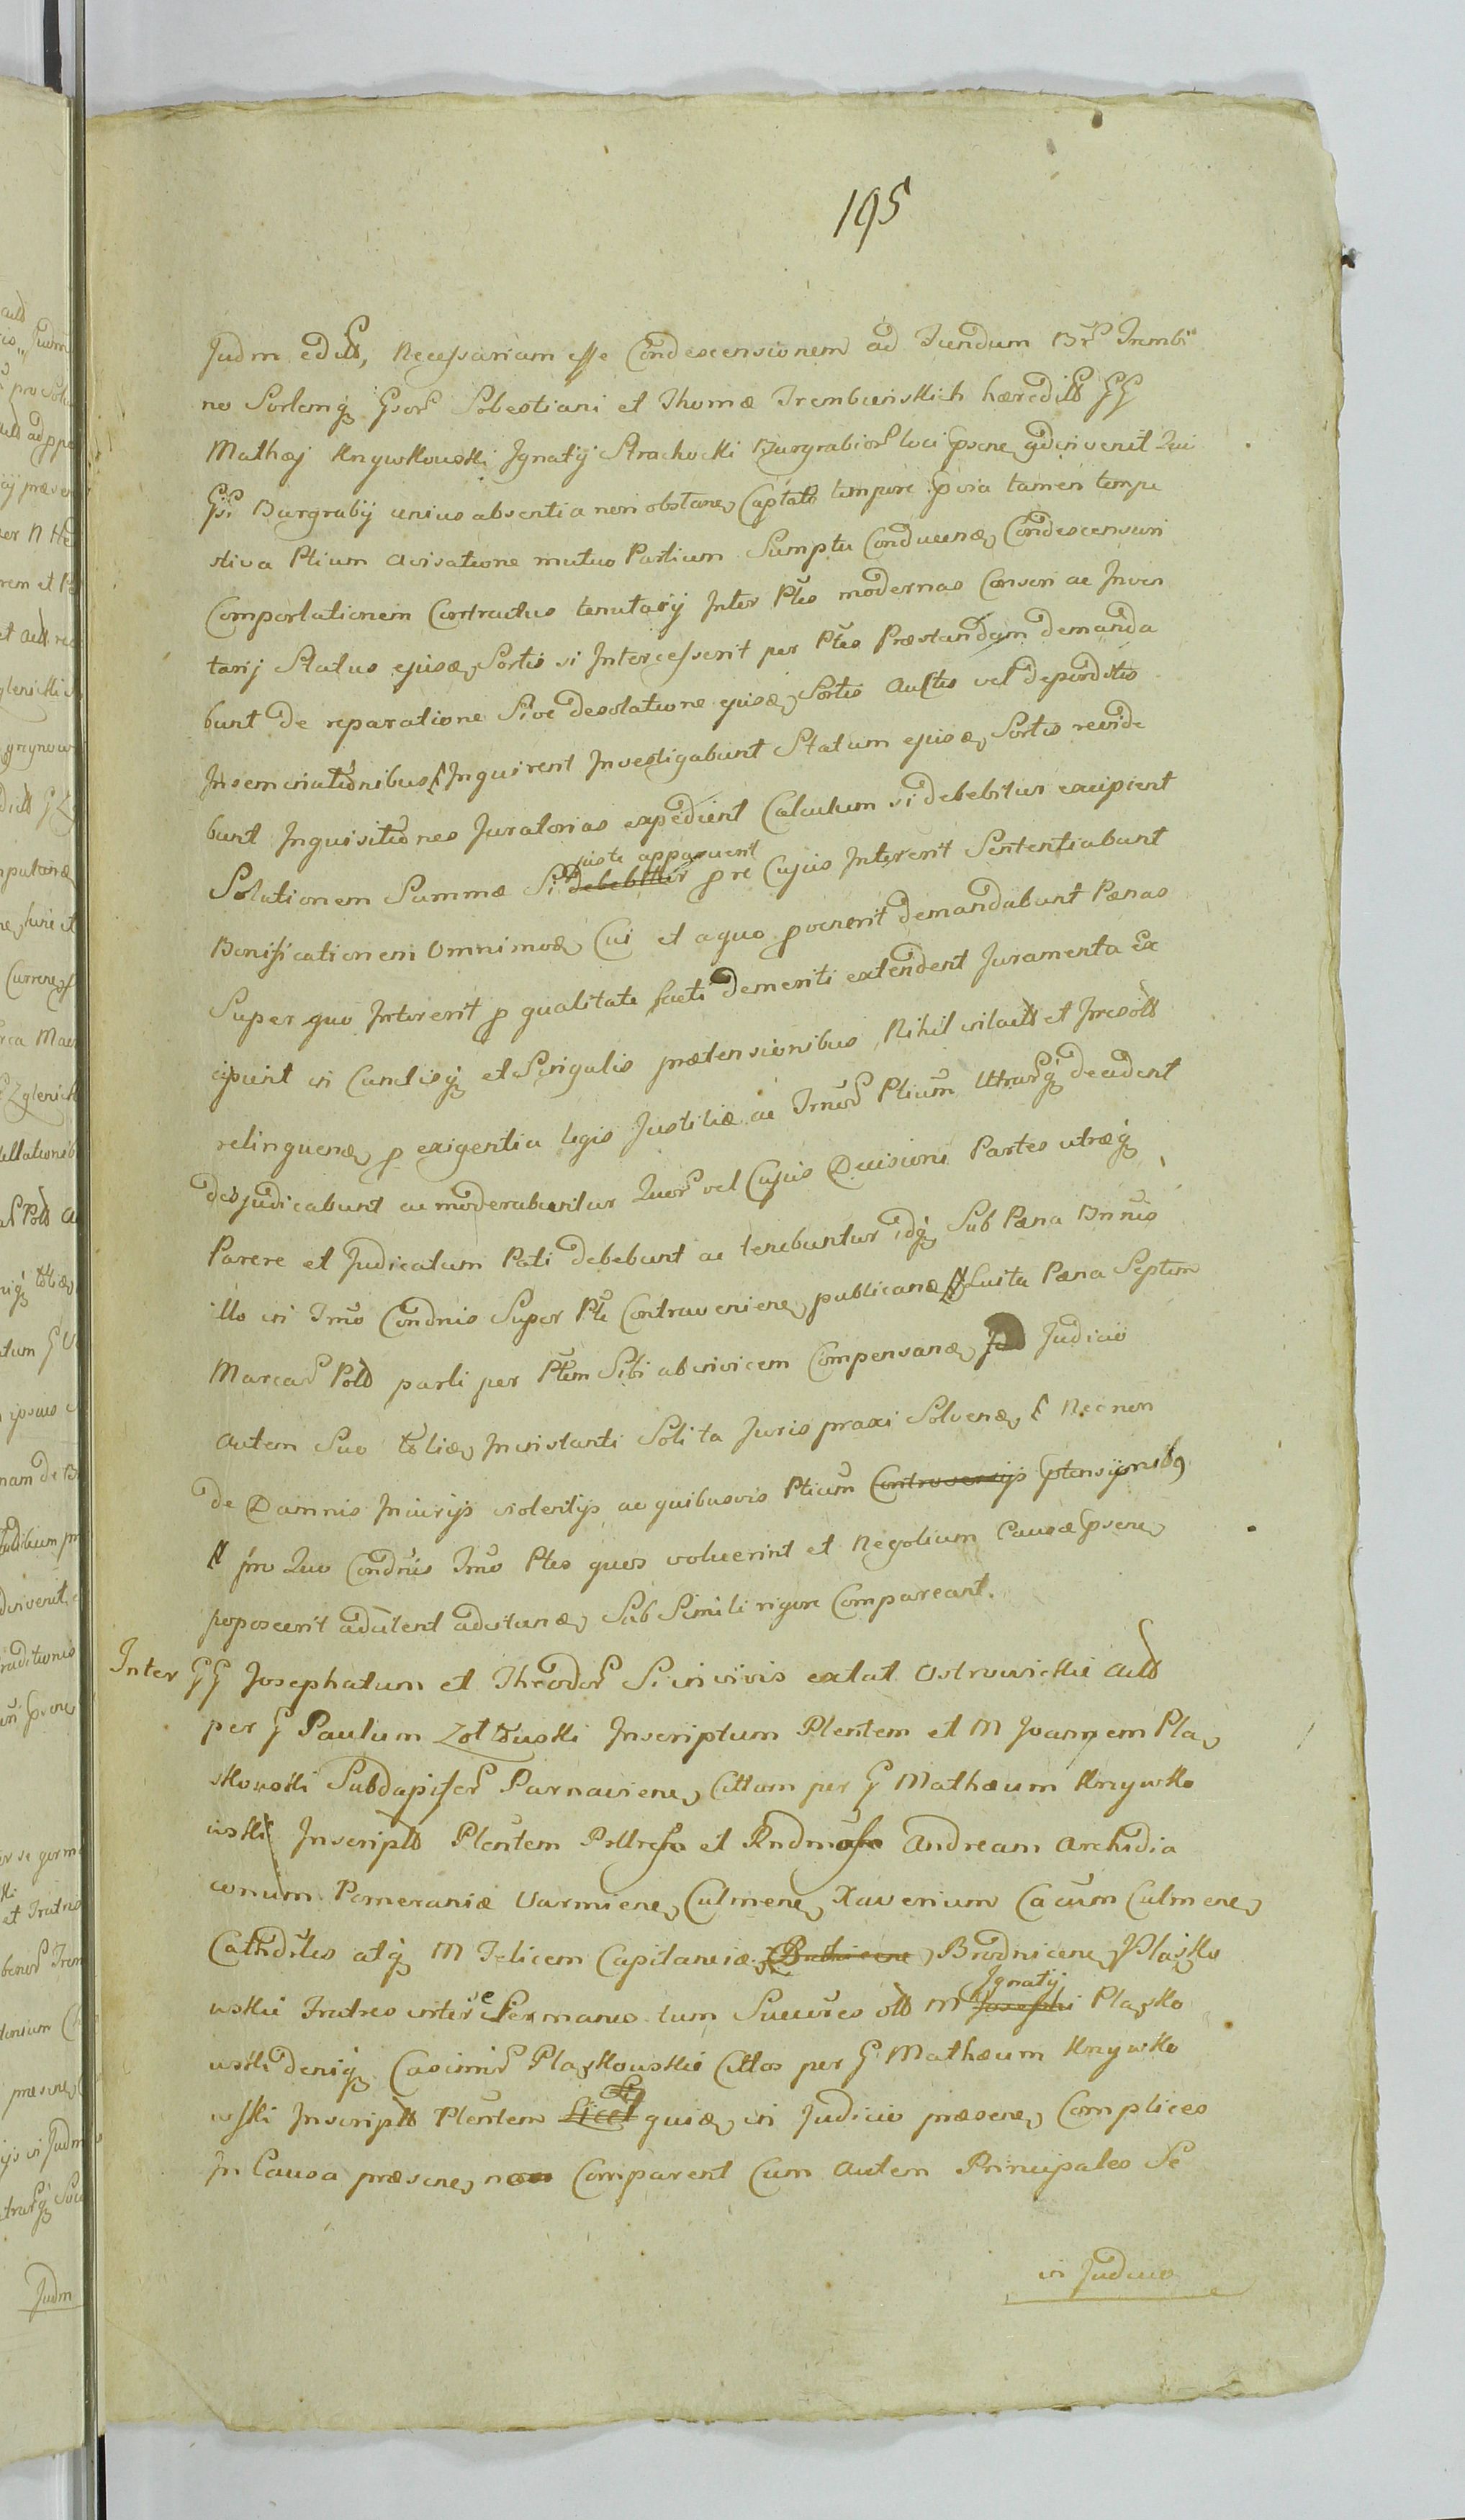 195
Judm edild, Necessariam esse Condescensionem ad fundum Br Trembi
no Sortemq Gsor Sebestiani et Thomæ Trembienskich hæredild GG
Mathæj Knywkowski Jgnatij Strachocki Burgrabior loci psene, gdinvenit Qui
Gsi Burgrabij unius absentia non obstane, Captato tempore pvia tamen tempe
stiva Ptium avisatione mutuo Partium Sumptu Conducenæ, Condescensuri
Comportationem Contractus tenutarij Inter Ptes modernas Conscri ac Jnven
tarij Status ejusæ, Sortis si Intercesserit per Ptes Præstandam demanda
bunt De reparatione Sive desolatione ejusæ, Sortis Auctis vel deperditis
Jnseminationibus Jnquirent Jnvestigabunt Statum ejusæ, Sortis revide
bunt Jnquisitiones Juratorias expedient Calculum si debebitur excipient
Solutionem Summæ Si debebitur juste apparuerit p re Cujus Jntererit Sententiabunt
Bonificationem Omnimodæ, Cui et a quo pvenerit demandabunt Pænas
Super quo Jntererit p qualitate facti demeriti extendent Juramenta Ex
cipient in Cunctisq et Singulis prætensionibus, Nihil in laudd et Jrresold
relinquenæ, p exigentia legis Justitiæ ac Jrum Ptium Utrarq decident
dijudicabunt ac moderabuntur Quor vel Cujus Decisioni Partes utræq
Parere et Judicatum Pati debebunt ac tenebuntur idq Sub Pæna Bnnis
illo in Tmo Condnis Super Pte Contraveniene, publicanæ, Luita Pæna Septem
Marcar Pold parti per Ptem Sibi ab invicem Compensanæ, Judicio
autem Suo toties, Jn instanti Solita Juris praxi Solvenæ, Nec non
de Damnis Jniurijs violentijs, ac quibusvis Ptium Controversijs ptensijonibq
pro Quo Condnis Tmo Ptes quos voluerint et Negotium Causæ psene,
poposcerit aducent adcitanæ, Sub Simili rigore Compareant.
Inter GG Josephatum et Theodor Si in vivis extat Ostrowickie Actd
per G Paulum Zołtowski Jnscriptum Plentem et M Joannem Pla,
skowski Subdapifer Parnaviene, Cittum per G Mathæum Knywko
wski Jnscriptd Plentem Prllres et Rndmos Andream Archidia
conum Pomeraniæ Varmiene, Culmene, Xaverium Cacum Culmene,
Cathdles atq M Felicem Capitaneiæ, Brodnicene, Plasko
wskie Fratres inter se Germanos tum Succres old M Josephi Jgnatij Plasko
wski deniq Casimir Plaskowskie Cittos per G Mathæum Knywko
wski Jnscriptd Plentem Licet quiæ, in Judicio præsene, Complices
Jn Causa præsene, non Comparent Cum autem Principales Se
in Judicio